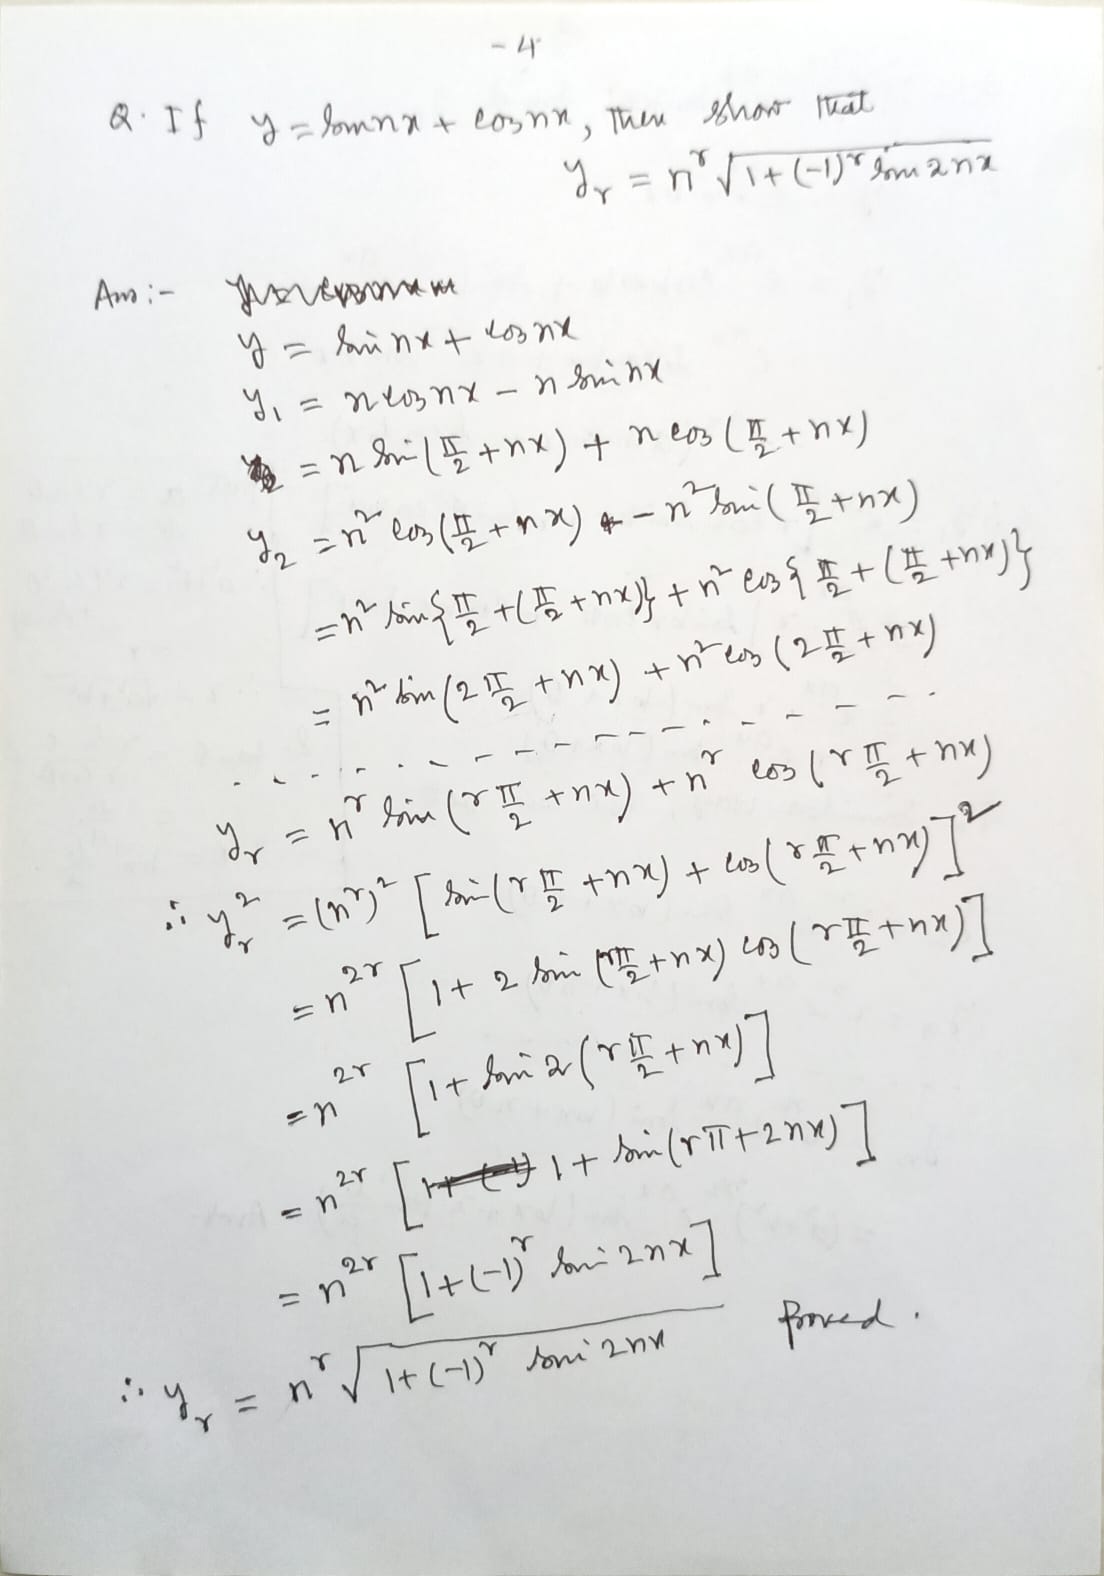 - 4
Q. If y = sin nx + cos nx, then show that
y_r = n^r √(1 + (-1)^r sin 2nx)
Ans :-
y = sin nx + cos nx
y₁ = n cos nx - n sin nx
= n sin (π/2 + nx) + n cos (π/2 + nx)
y₂ = n² cos (π/2 + nx) - n² sin (π/2 + nx)
= n² sin {π/2 + (π/2 + nx)} + n² cos {π/2 + (π/2 + nx)}
= n² sin (2 π/2 + nx) + n² cos (2 π/2 + nx)
y_r = n^r sin (r π/2 + nx) + n^r cos (r π/2 + nx)
∴ y_r² = (n^r)² [sin (r π/2 + nx) + cos (r π/2 + nx)]²
= n^2r [1 + 2 sin (r π/2 + nx) cos (r π/2 + nx)]
= n^2r [1 + sin 2 (r π/2 + nx)]
= n^2r [1 + sin (rπ + 2nx)]
= n^2r [1 + (-1)^r sin 2nx]
∴ y_r = n^r √(1 + (-1)^r sin 2nx) Proved.